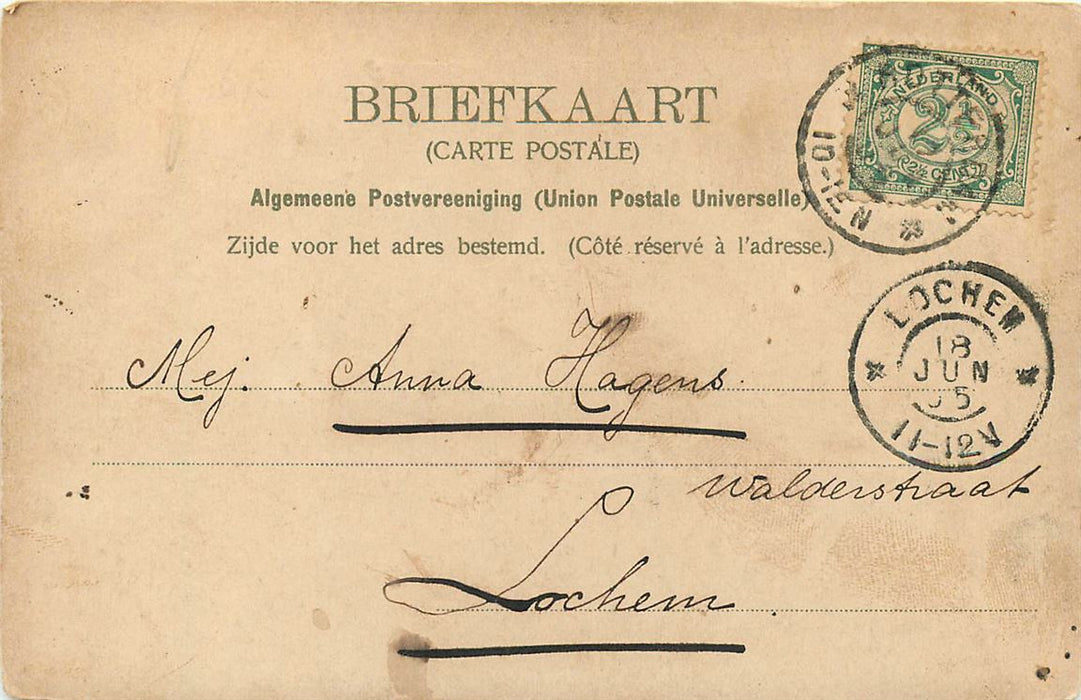 BRIEFKAART
(CARTE POSTALE)
Algemeene Postvereeniging (Union Postale Universelle)
Zijde voor het adres bestemd. (Côté réservé à l'adresse.)
NEDERLAND
2½
2½ CENT
10-12N
LOCHEM
18
JUN
05
11-12V
Mej. Anna Hagens
Walderstraat
Lochem